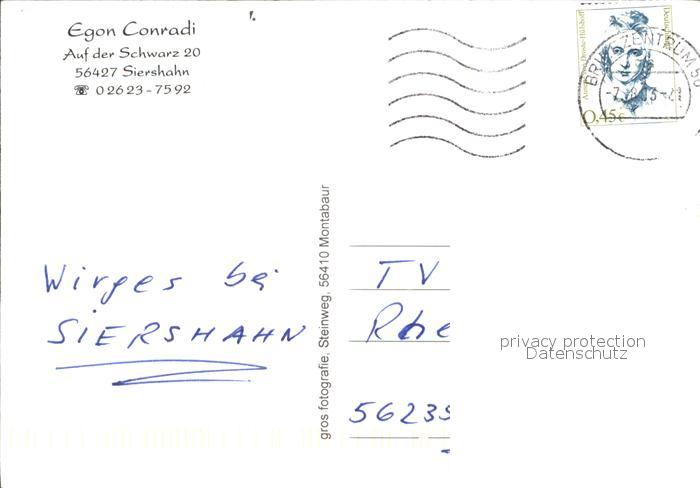 Egon Conradi
Auf der Schwarz 20
56427 Siershahn
☎ 02623-7592
Annette von Droste-Hülshoff
Deutschland
0,45€
BRIEFZENTRUM 56
Wirges bei
SIERSHAHN
gros fotografie, Steinweg, 56410 Montabaur
TV
Rhe
56235
privacy protection
Datenschutz